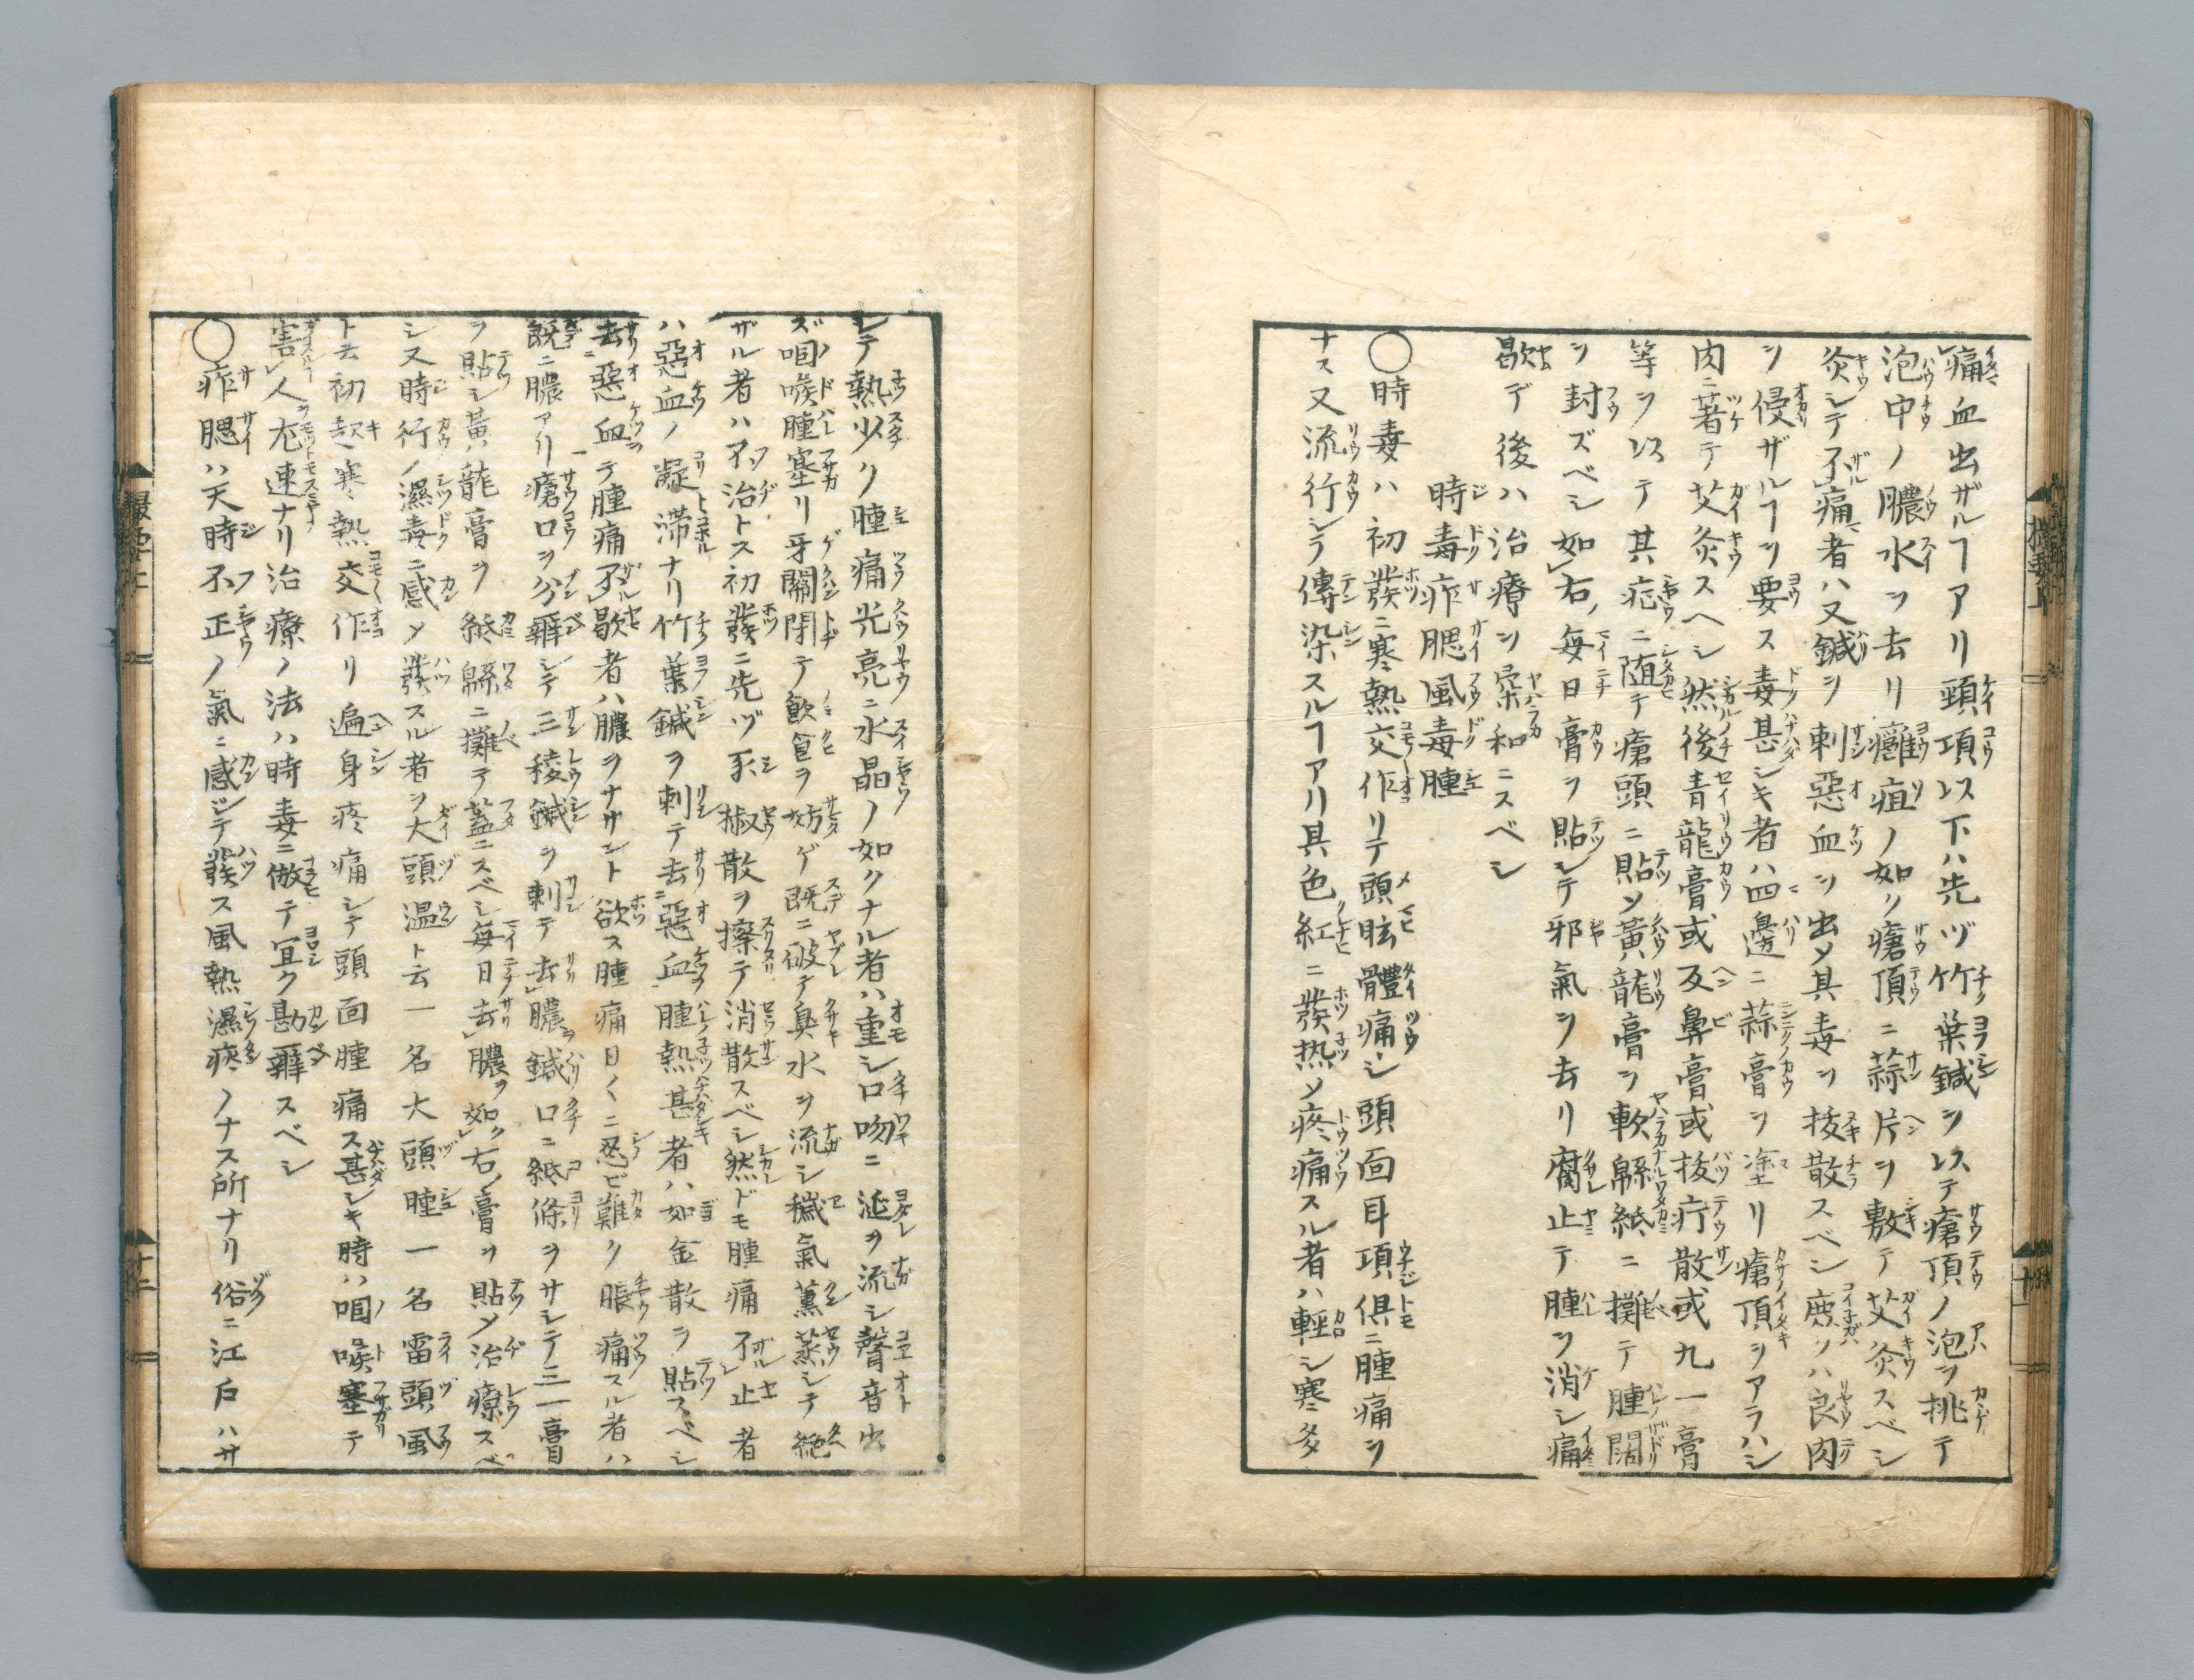 痛血出ザルヿアリ頸項以下ハ先ヅ竹葉鍼ヲ以テ瘡頂ノ泡ヲ挑テ
泡中ノ膿水ヲ去リ癰疽ノ如ク瘡頂ニ蒜片ヲ敷テ艾灸スベシ
灸シテ不痛者ハ又鍼ヲ刺惡血ヲ出メ其毒ヲ抜散スベシ庶クハ良肉
ヲ侵ザルヿヲ要ス毒甚シキ者ハ四邊ニ蒜膏ヲ塗リ瘡頂ヲアラハシ
肉ニ著テ艾灸スヘシ然後青龍膏或反鼻膏或抜疔散或九一膏
等ヲ以テ其症ニ随テ瘡頭ニ貼メ黃龍膏ヲ軟緜紙ニ攤テ腫闊
ヲ封ズベシ如右毎日膏ヲ貼シテ邪氣ヲ去リ腐止テ腫ヲ消シ痛
歇デ後ハ治療ヲ柔和ニスベシ
時毒痄腮風毒腫
〇時毒ハ初發ニ寒熱交作リテ頭眩體痛シ頭面耳項俱ニ腫痛ヲ
ナス又流行シテ傳染スルヿアリ具色紅ニ發热メ疼痛スル者ハ輕シ寒多
シテ熱少ク腫痛光亮ニ水晶ノ如クナル者ハ重シ口吻ニ涎ヲ流シ聲音出
ズ咽喉腫塞リ牙關閉テ飲食ヲ妨ゲ既ニ破テ臭水ヲ流シ穢氣薫蒸シテ絶
ザル者ハ不治トス初發ニ先ヅ椒散ヲ擦テ消散スベシ然ドモ腫痛不止者
ハ惡血ノ凝滞ナリ竹葉鍼ヲ刺テ去惡血腫熱甚者ハ如金散ヲ貼スベシ
去惡血テ腫痛不歇者ハ膿ヲサザント欲ス腫痛日々ニ忍ビ難ク脹痛スル者ハ
既ニ膿アリ瘡口ヲ分辨シテ三稜鍼ヲ刺テ去膿鍼口ニ紙條ヲサシテ三一膏
ヲ貼シ黃龍膏ヲ紙緜ニ攤テ蓋ニスベシ毎日去膿如右膏ヲ貼メ治療スベ
シ又時行ノ濕毒ニ感メ發スル者ヲ大頭温ト云一名大頭腫一名雷頭風
ト云初起寒熱交作リ遍身疼痛シテ頭面腫痛ス甚シキ時ハ咽喉塞テ
害人尤速ナリ治療ノ法ハ時毒ニ倣テ宜ク勘辨スベシ
〇痄腮ハ天時不正ノ氣ニ感ジテ發ス風熱濕痰ノナス所ナリ俗ニ江戸ハサ